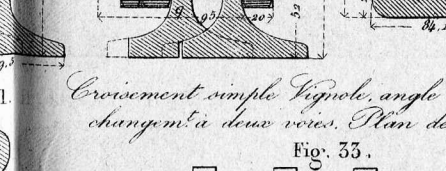 9 95 20 52
9,5 34,
Croisement simple Vignole, angle
changemt. à deux voies. Plan de
Fig. 33.